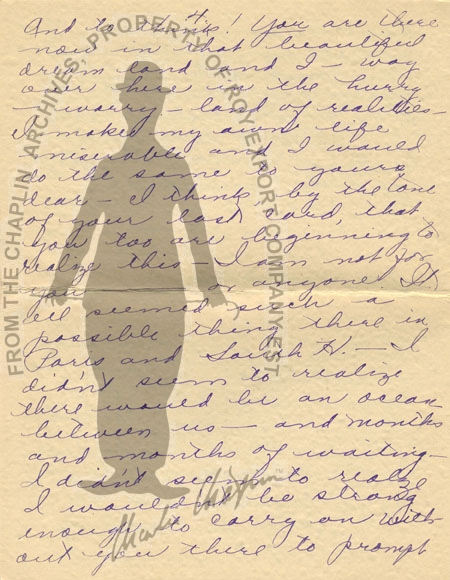 4.
And to think! You are there
now in that beautiful
dream land and I – way
over here in the hurry
– worry – land of realities –
I makes my own life
miserable and I would
do the same to yours
dear – I think by the tone
of your last card, that
you too are beginning to
realize this – I am not for
you – or anyone. It
all seemed such a
possible thing there in
Paris and South H. – I
didn't seem to realize
there would be an ocean
between us – and months
and months of waiting –
I didn't seem to realize
I would not be strong
enough to carry on with-
out you there to prompt
FROM THE CHAPLIN ARCHIVES, PROPERTY OF ROY EXPORT COMPANY EST.
Charlie Chaplin™